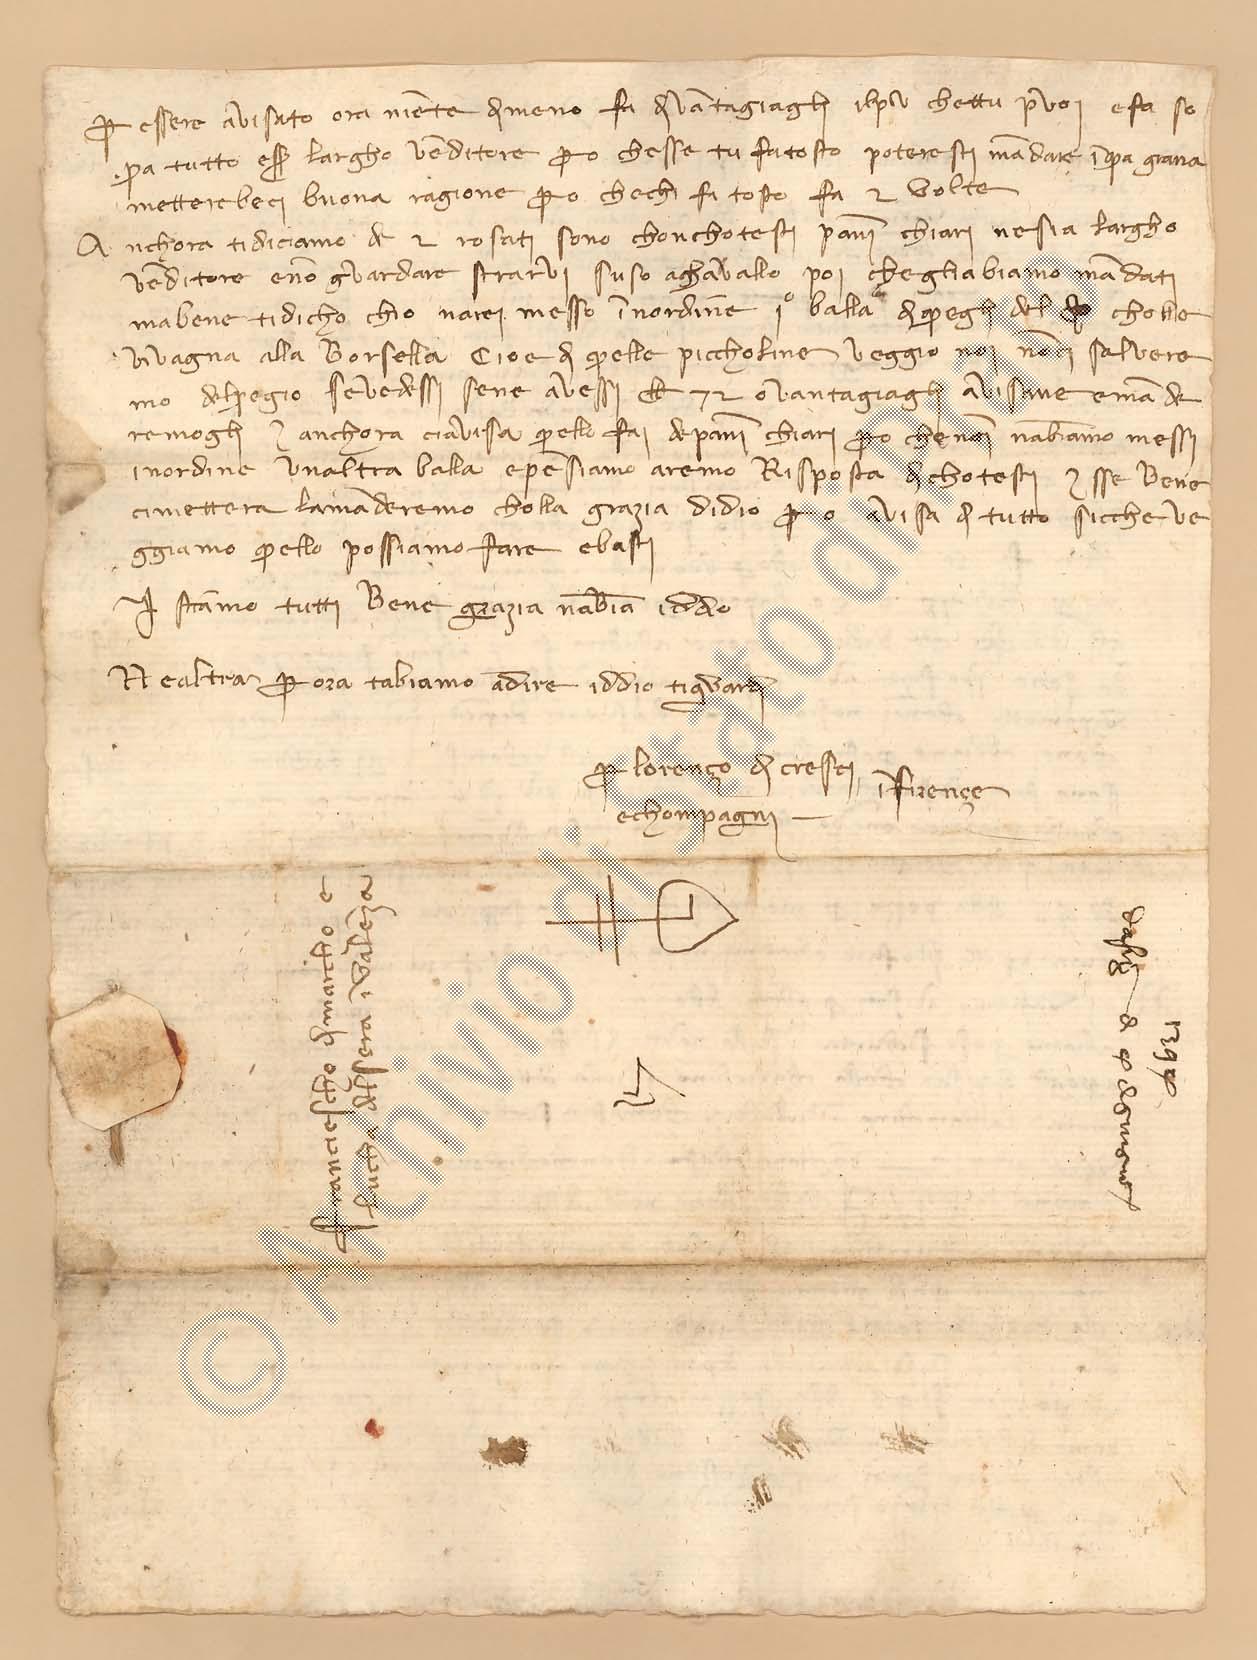 P essere avisato ora niente dimeno fa di vantagiagli ilpiu chettu puoi e fa so
pra tutto esser largho venditore pero chesse tu fa tosto poteresti mandare in qua grana
metterebeci buona ragione pero chechi fa tosto fa 2 volte
Anchora tidiciamo de 2 rosati sono chonchotesti panni chiari nesia largho
venditore e non guardare starvi suso aghavallo poi chegliabiamo mandati
mabene tidicho chio narei messo inordine 1º balla di quegli del cholle
vivagna alla Borsella Cioe di quelle piccholine veggio noi non ci salvere
mo delpegio sevedessi sene avessi 72 ovantagiagli avisane e mande
remogli e anchora ciavisa quello fai de panni chiari pero chenoi nabiamo messi
inordine unaltra balla e pensiamo aremo Risposta di chotesti e sse Bene
cimettera lamanderemo cholla grazia didio pero avisa di tutto sicche ve
ggiamo quello possiamo fare ebasti
stiamo tutti Bene grazia nabia iddio
Nealtra per ora tabiamo adire iddio tiguardi
P lorenço di cresci
echompagni
in firençe
Francescho di marcho e
Lucha del sere in valenza
da firenze